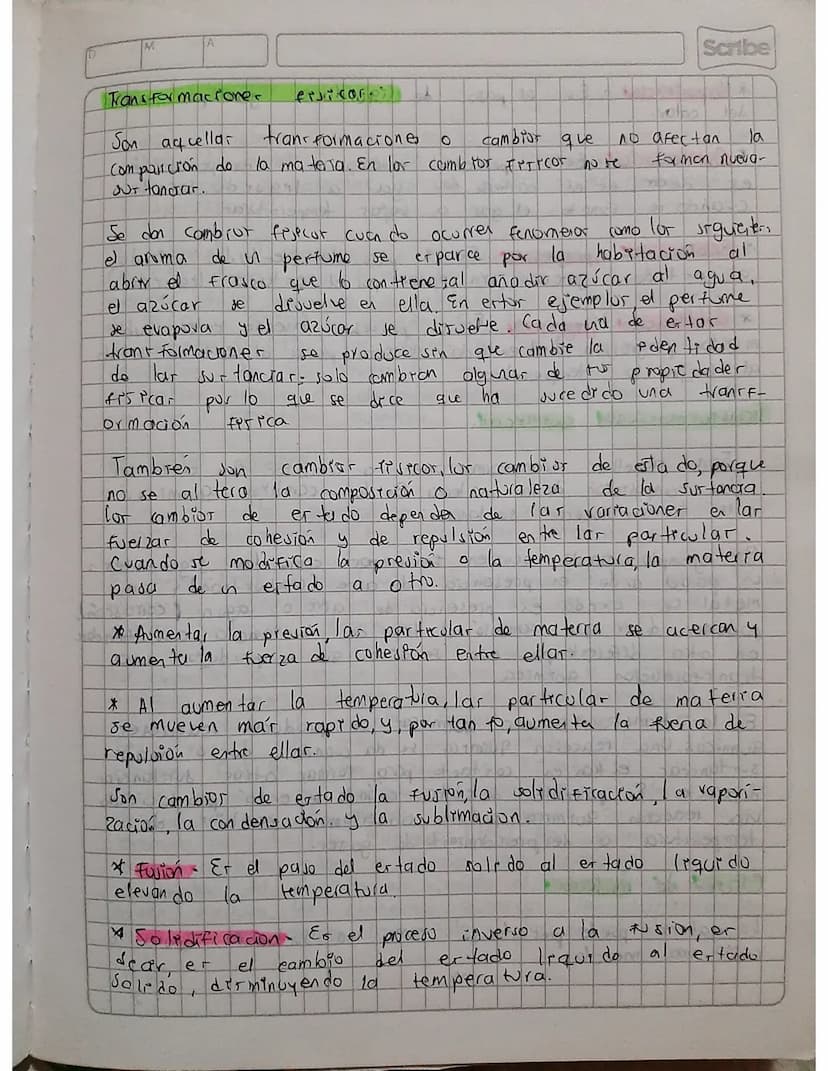 D M A
Scribe
Transformaciones físicas.
Son aquellas transformaciones o cambios que no afectan la
composición de la materia. En los cambios físicos no se forman nuevas
sustancias.
Se dan cambios físicos cuando ocurren fenomenos como los siguientes,
el aroma de un perfume se esparce por la habitación al
abrir el frasco que lo contiene; al añadir azúcar al agua,
el azúcar se disuelve en ella. En estos ejemplos, el perfume
se evapora y el azúcar se disuelve. Cada una de estas
transformaciones se produce sin que cambie la identidad
de las sustancias: solo cambian algunas de sus propiedades
físicas por lo que se dice que ha sucedido una transf-
ormación física
También son cambios físicos, los cambios de estado, porque
no se altera la composición o naturaleza de la sustancia.
Los cambios de estado dependen de las variaciones en las
fuerzas de cohesión y de repulsión entre las particulas.
Cuando se modifica la presión o la temperatura, la materia
pasa de un estado a otro.
* Aumentar la presión, las particulas de materia se acercan y
aumenta la fuerza de cohesión entre ellas.
* Al aumentar la temperatura, las particulas de materia
se mueven más rapido, y, por tanto, aumenta la fuerza de
repulsión entre ellas.
Son cambios de estado la fusión, la solidificación, la vapori-
zación, la condensación y la sublimacion.
* Fusión- Es el paso del estado solido al estado liquido
elevando la temperatura.
* Solidificacion- Es el proceso inverso a la fusion, es
decir, es el cambio del estado liquido al estado
solido, disminuyendo la temperatura.